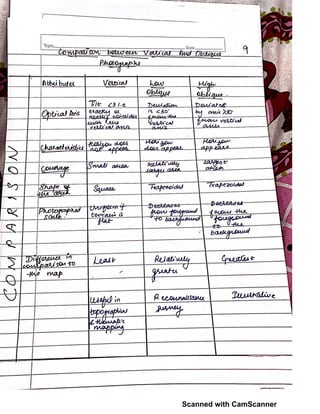 Topic Date
Comparison between Vertical And Oblique 9
Photographs
Attributes Vertical Low Oblique High Oblique
Optical Axis Tilt < 3 i.e exactly or nearly coincides with the vertical axis Deviation is < 30 from the vertical axis Deviated by axis > 30 from vertical axis
Characteristics Horizon does not appear Horizon does not appear Horizon appears
Coverage Small area Relatively large area Largest area
Shape of the area Square Trapezoidal Trapezoidal
Photographed scale Uniform if terrain is flat Decreases from foreground to background Decreases from the foreground to the background
Difference in comparison to the map Least Relatively greater Greatest
Useful in topographic & thematic mapping Reconnaissance Survey Illustrative
COMPARISON
Scanned with CamScanner